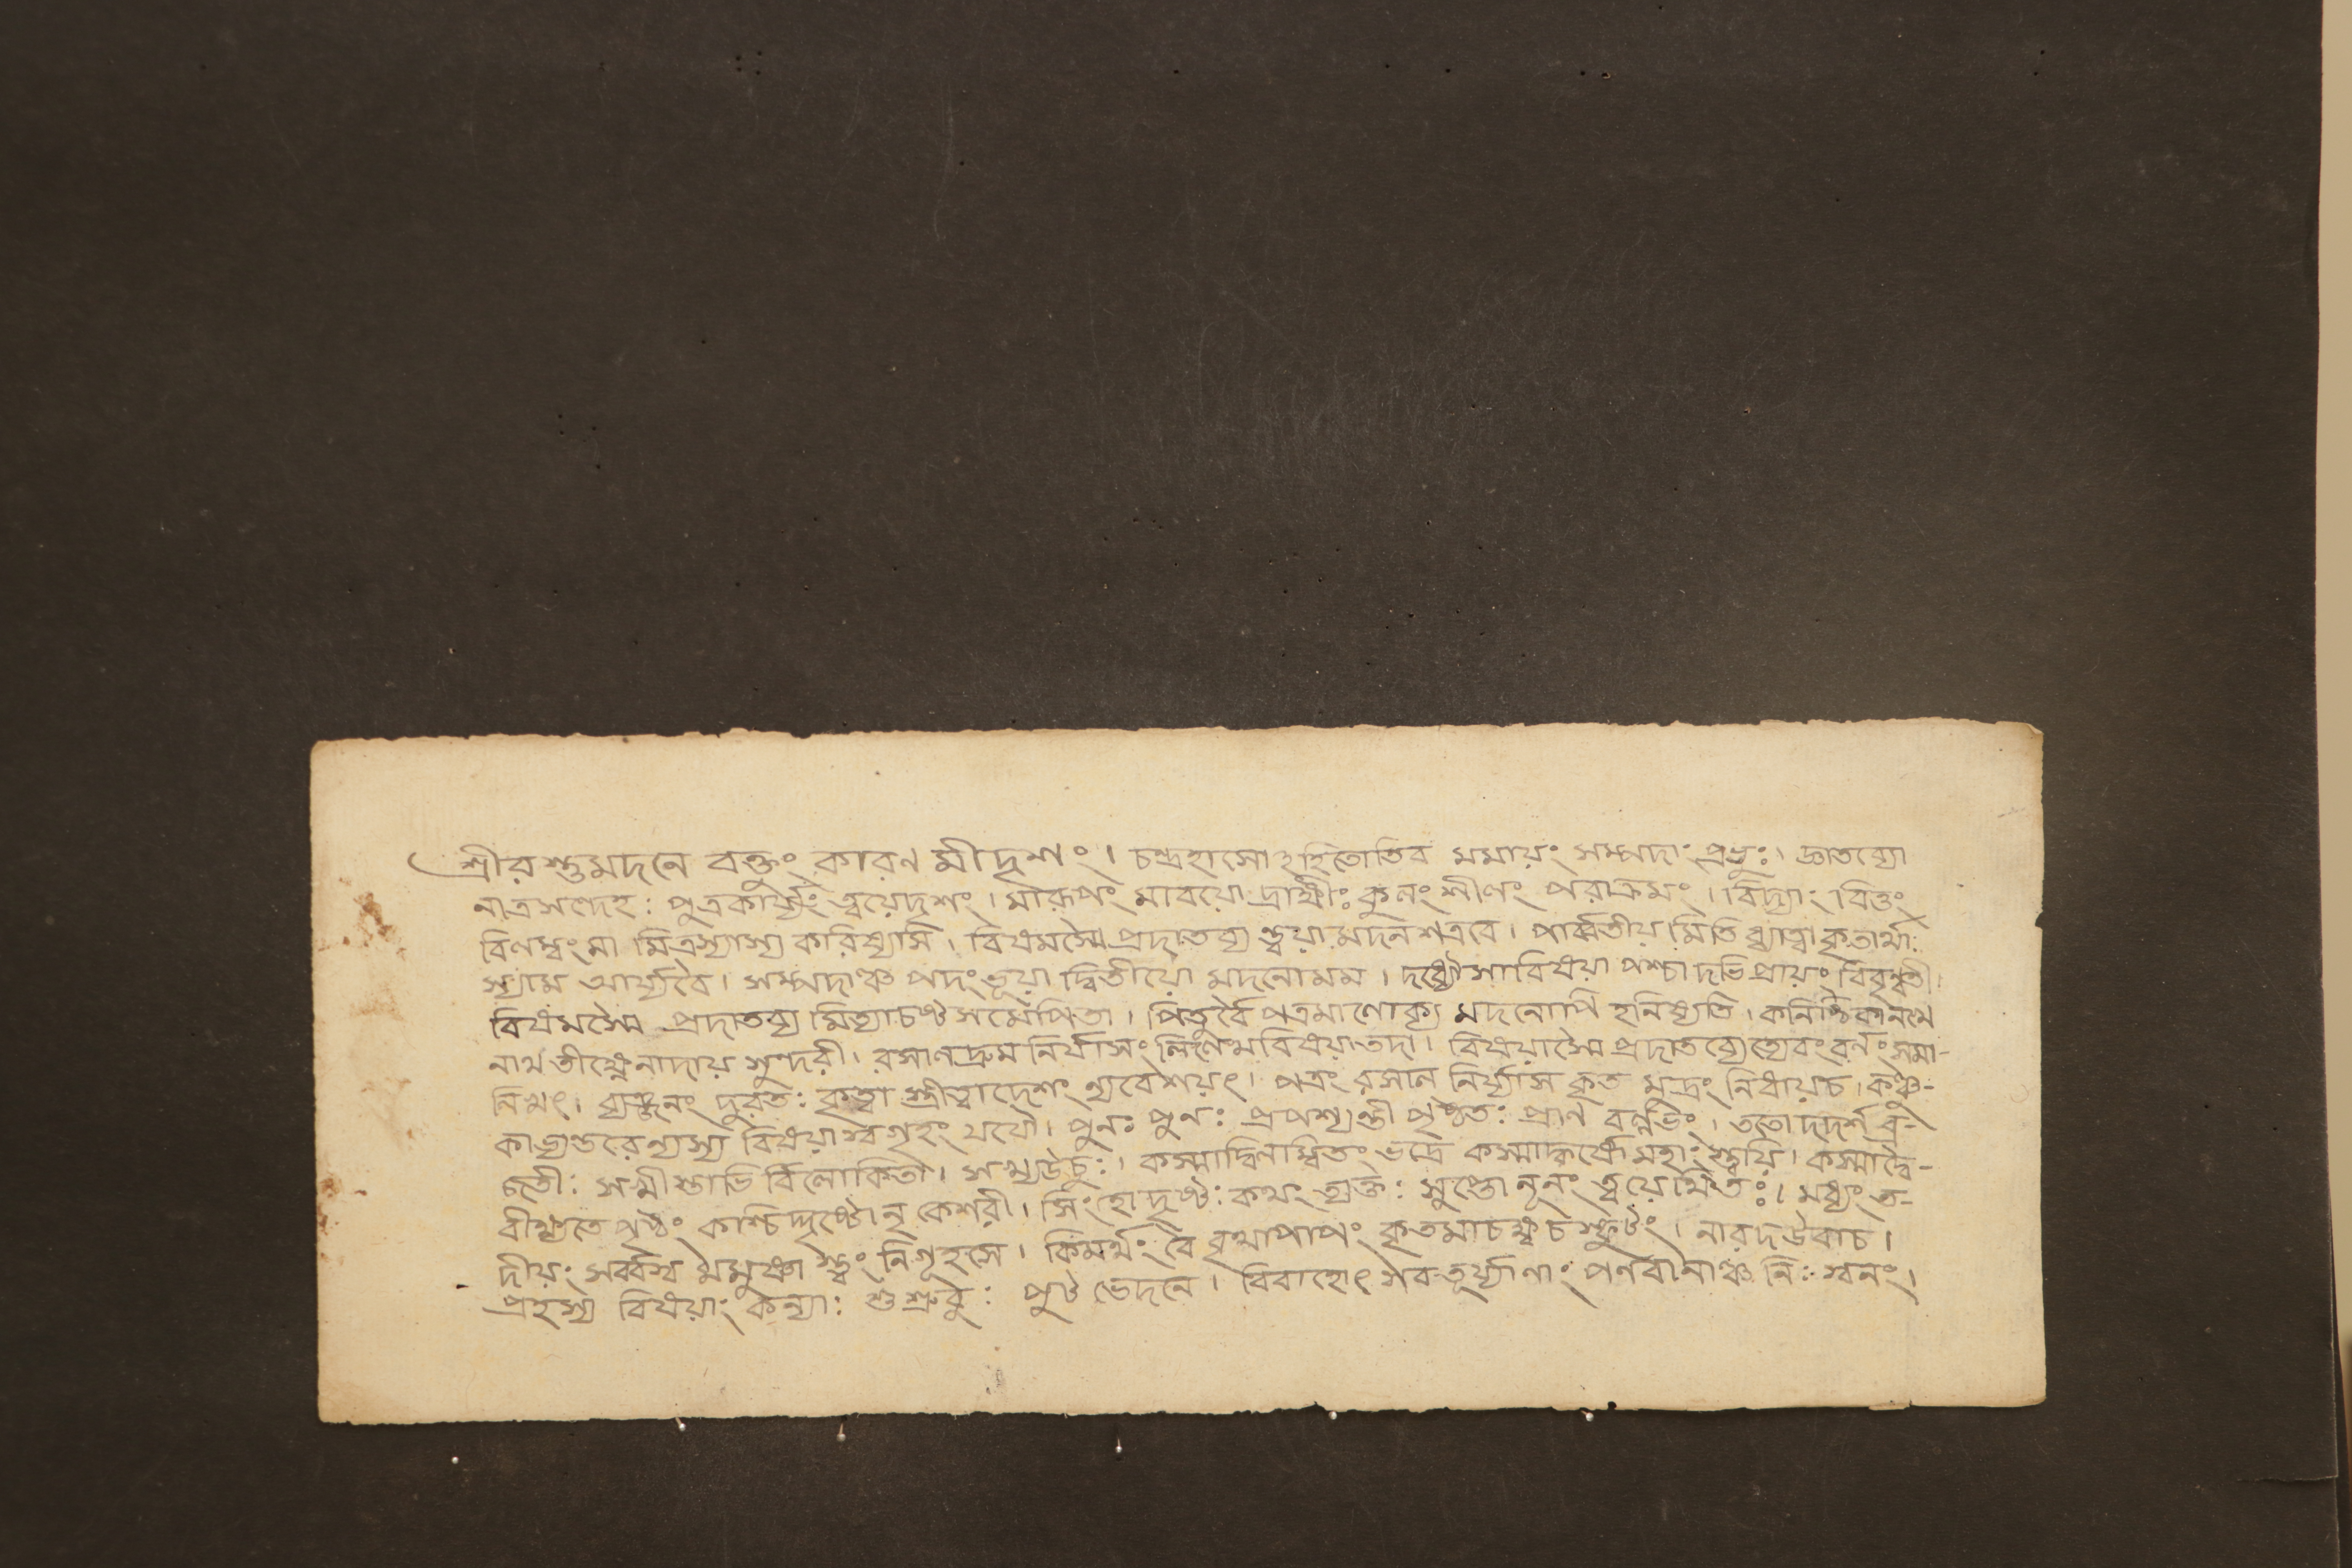 শ্রীরস্তুমদনে বক্তুং কারণ মীদৃশং। চন্দ্রহাসোঽহিতোতিব মমায়ং সম্পদাং প্রভুঃ। জ্ঞাতব্যো
নাত্রসন্দেহঃ পুত্রকার্য্যং ত্বয়েদৃশং। মারূপং মাবয়ো দ্রাক্ষীঃ কুলং শীলং পরাক্রমং। বিদ্যাং বিত্তং
বিলম্বং মা মিত্রস্যাস্য করিষ্যসি। বিষমস্মৈ প্রদাতব্য ন্ত্বয়া মদন শত্রবে। পার্ব্বতীয় মিতি ধ্যাত্বা কৃতার্থাঃ
স্যাম আর্য্যবৈ। সম্পদাঞ্চ পদং ভূয়া দ্বিতীয়ো মদনোমম। দধ্যৌসাবিষয়া পশ্চা দভিপ্রায়ং বিবৃন্বতী।
বিষমস্মৈ প্রদাতব্য মিত্যাচষ্ট সমেপিতা। পিতুর্বৈ পত্রমালোক্য মদনোপি হনিষ্যতি। কনিষ্ঠিকানখে
নাথ তীক্ষ্ণেনাদায় সুন্দরী। রসালদ্রুম নির্যাসং লিলেখবিষয়া তদা। বিষয়াস্মৈ প্রদাতব্যেত্যেবং বর্ণং সমা-
লিখৎ। ব্যঞ্জনং দুরতঃ কৃত্বা স্ত্রীত্বাদেশং ন্যবেশয়ৎ। পত্রং রসাল নির্য্যাস কৃত মুদ্রং নিধায়চ। কঞ্চু-
কাভ্যন্তরেন্যস্য বিষয়া স্বগৃহং যযৌ। পুনঃ পুনঃ প্রপশ্যন্তী পৃষ্ঠতঃ প্রাণ বল্লভং। ততো দদর্শ ব্র-
জতীঃ সখীস্তাভি র্বিলোকিতা। সখ্যউচুঃ। কস্মাদ্বিলম্বিতং ভদ্রে কস্মাদ্ধর্ষো মহাং স্ত্বয়ি। কস্মাদ্বৈ-
বীক্ষ্যতে পৃষ্ঠং কাশ্চিদ্দৃষ্টোনৃ কেশরী। সিংহোদৃষ্টঃ কথং ত্যক্তঃ সুপ্তো নূনং ত্বয়োত্থিতঃ। মধ্যং ত-
দীয়ং সর্ব্বস্ব মমুষ্ণা স্ত্বং নিগূহসে। কিমর্থং বৈ বৃথাপাপং কৃতমাচক্ষ্বচ স্ফুটং। নারদউবাচ।
প্রহস্য বিষয়াং কন্যাঃ শুশ্রুবুঃ পুট ভেদনে। বিবাহোৎসবতূর্য্যাণাং পণবানাঞ্চ নিঃস্বনং।